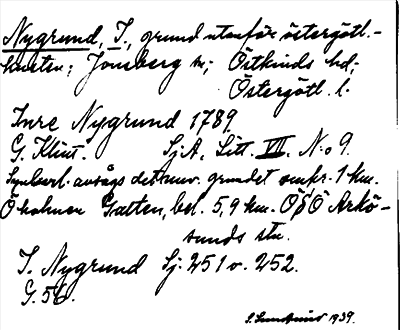 Nygrund, I., grund utanför östergötl.-
kusten; Jonsberg sn; Östkinds hd;
Östergötl. l.
Inre Nygrund 1789.
G. Klint. SjA, Litt. VII. N:o 9.
Synbarl. avsågs det nuv. grundet omkr. 1 km.
Ö holmen Gatten, bel. 5,9 km. ÖSÖ Arkö-
sunds stn.
I. Nygrund Sj: 251 o. 252.
G. 56.
1939.